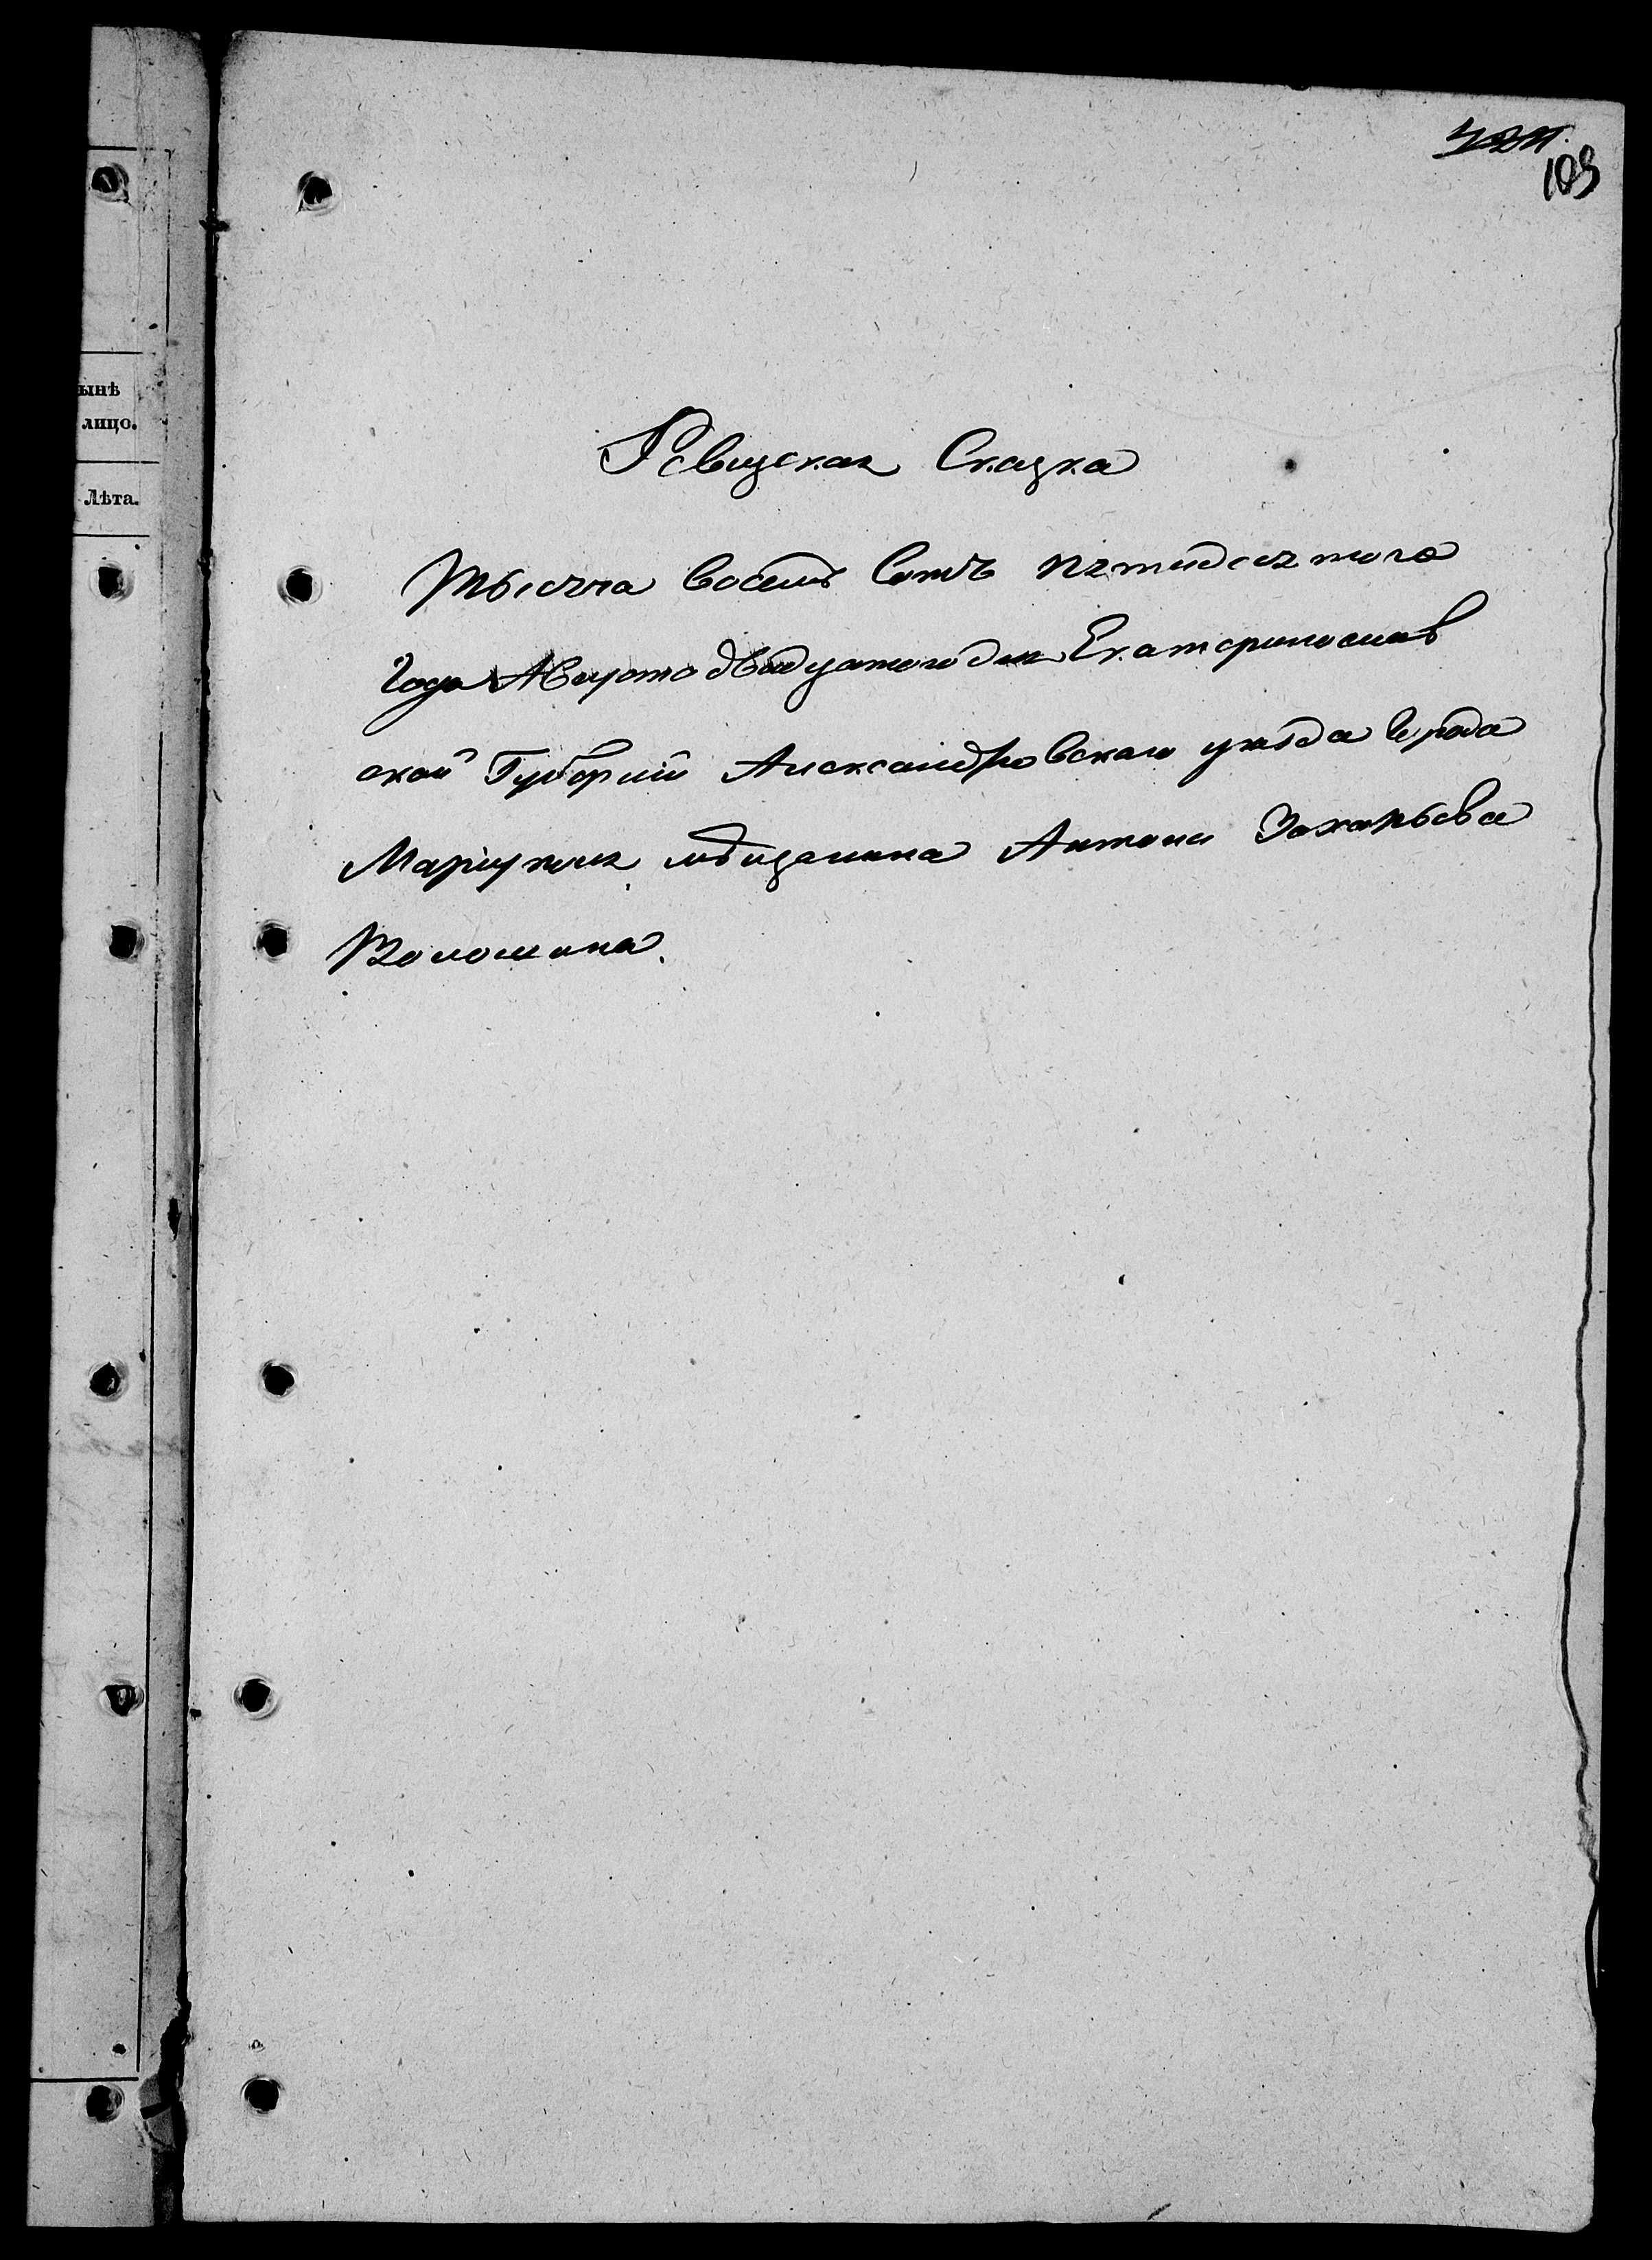 103
ынѣ
лицо.
Лѣта.
Ревизская Сказка
Тысяча восемь сотъ пятидесятого
Года Августа двадцатого дня Екатеринослав
ской Губерніи Александровскаго уѣзда Города
Маріуполя мѣщанина Антона Захарьева
Волошина.